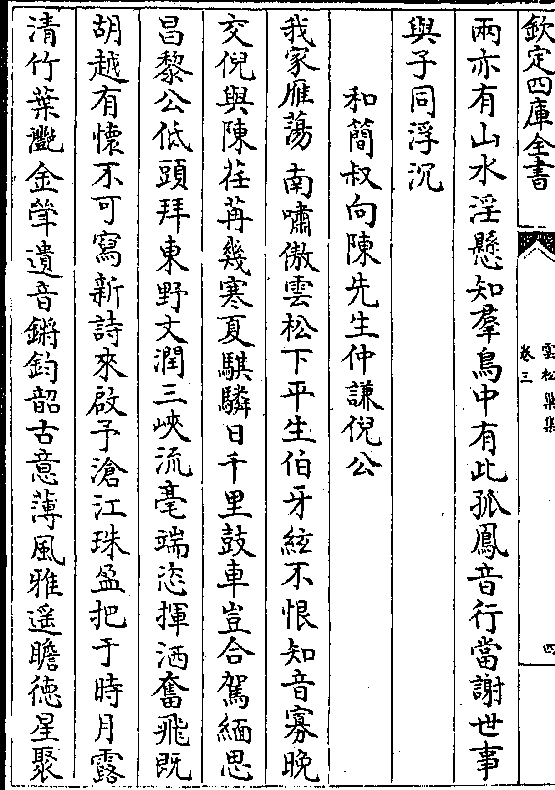 欽定四庫全書
雲松巢集
卷三
四
兩亦有山水淫懸知羣鳥中有此孤鳳音行當謝世事
與子同浮沉
和簡叔向陳先生仲謙倪公
我家雁蕩南嘯傲雲松下平生伯牙絃不恨知音寡晚
交倪與陳荏苒幾寒夏騏驎日千里鼓車豈合駕緬思
昌黎公低頭拜東野文潤三峽流毫端恣揮洒奮飛既
胡越有懷不可寫新詩來啟予滄江珠盈把于時月露
清竹葉灎金斝遺音鏘鈞韶古意薄風雅遥瞻徳星聚